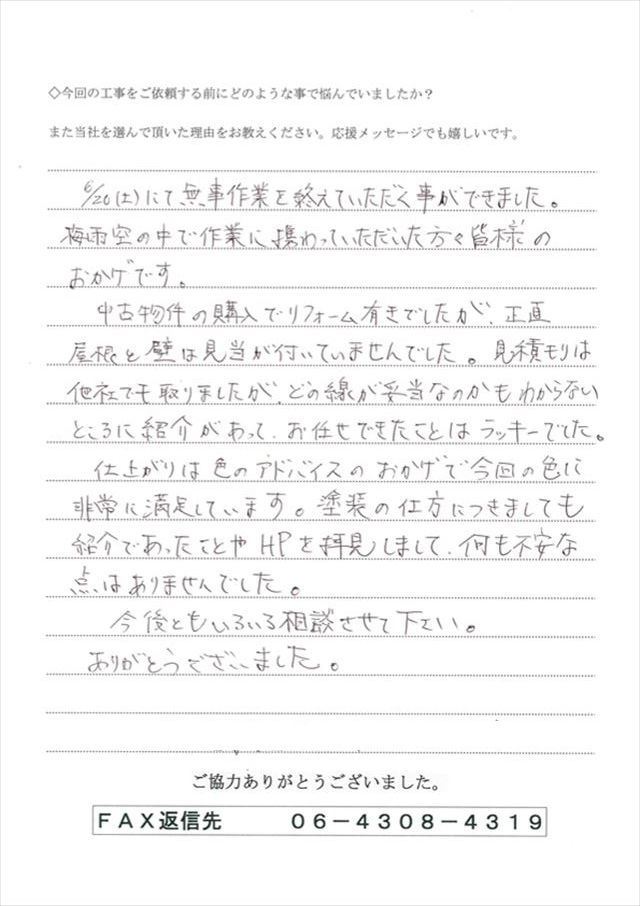 ◇今回の工事をご依頼する前にどのような事で悩んでいましたか？
また当社を選んで頂いた理由をお教えください。応援メッセージでも嬉しいです。
6/20(土)にて無事作業を終えていただく事ができました。
梅雨空の中で作業に携わっていただいた方々皆様の
おかげです。
中古物件の購入でリフォーム有きでしたが、正直
屋根と壁は見当が付いていませんでした。見積モリは
他社でも取りましたが、どの線が妥当なのかもわからない
ところに紹介があって、お任せできたことはラッキーでした。
仕上がりは色のアドバイスのおかげで今回の色に
非常に満足しています。塗装の仕方につきましても
紹介であったことやHPを拝見しまして、何も不安な
点はありませんでした。
今後ともいろいろ相談させて下さい。
ありがとうございました。
ご協力ありがとうございました。
FAX返信先　06－4308－4319